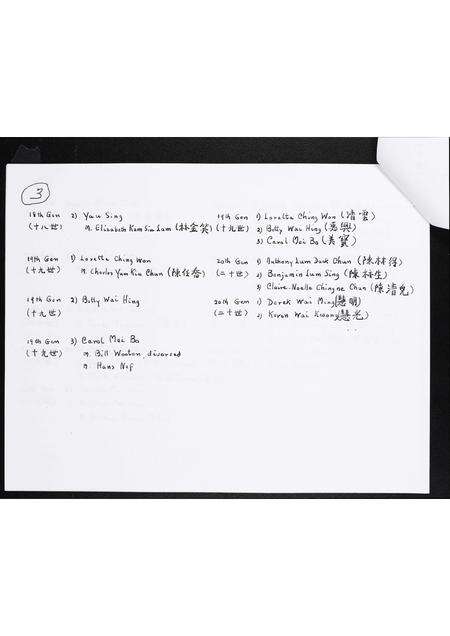 3
18th Gen 2) Yau Sing 19th Gen 1) Loretta Ching Wan (清雲)
(十八世) m. Elizabeth Kam Sin Lum (林金笑) (十九世) 2) Betty Wai Hing (惠興)
3) Carol Mei Bo (美寶)
19th Gen 1) Loretta Ching Wan 20th Gen 1) Anthony Lum Duck Chun (陳林得)
(十九世) m. Charles Yam Kiu Chun (陳任喬) (二十世) 2) Benjamin Lum Sing (陳林生)
3) Claire-Noelle Chingne Chun (陳清兒)
19th Gen 2) Betty Wai Hing 20th Gen 1) Derek Wai Ming (慧明)
(十九世) (二十世) 2) Karen Wai Kwong (慧光)
19th Gen 3) Carol Mei Bo
(十九世) m. Bill Wooton, divorced
m. Hans Nef